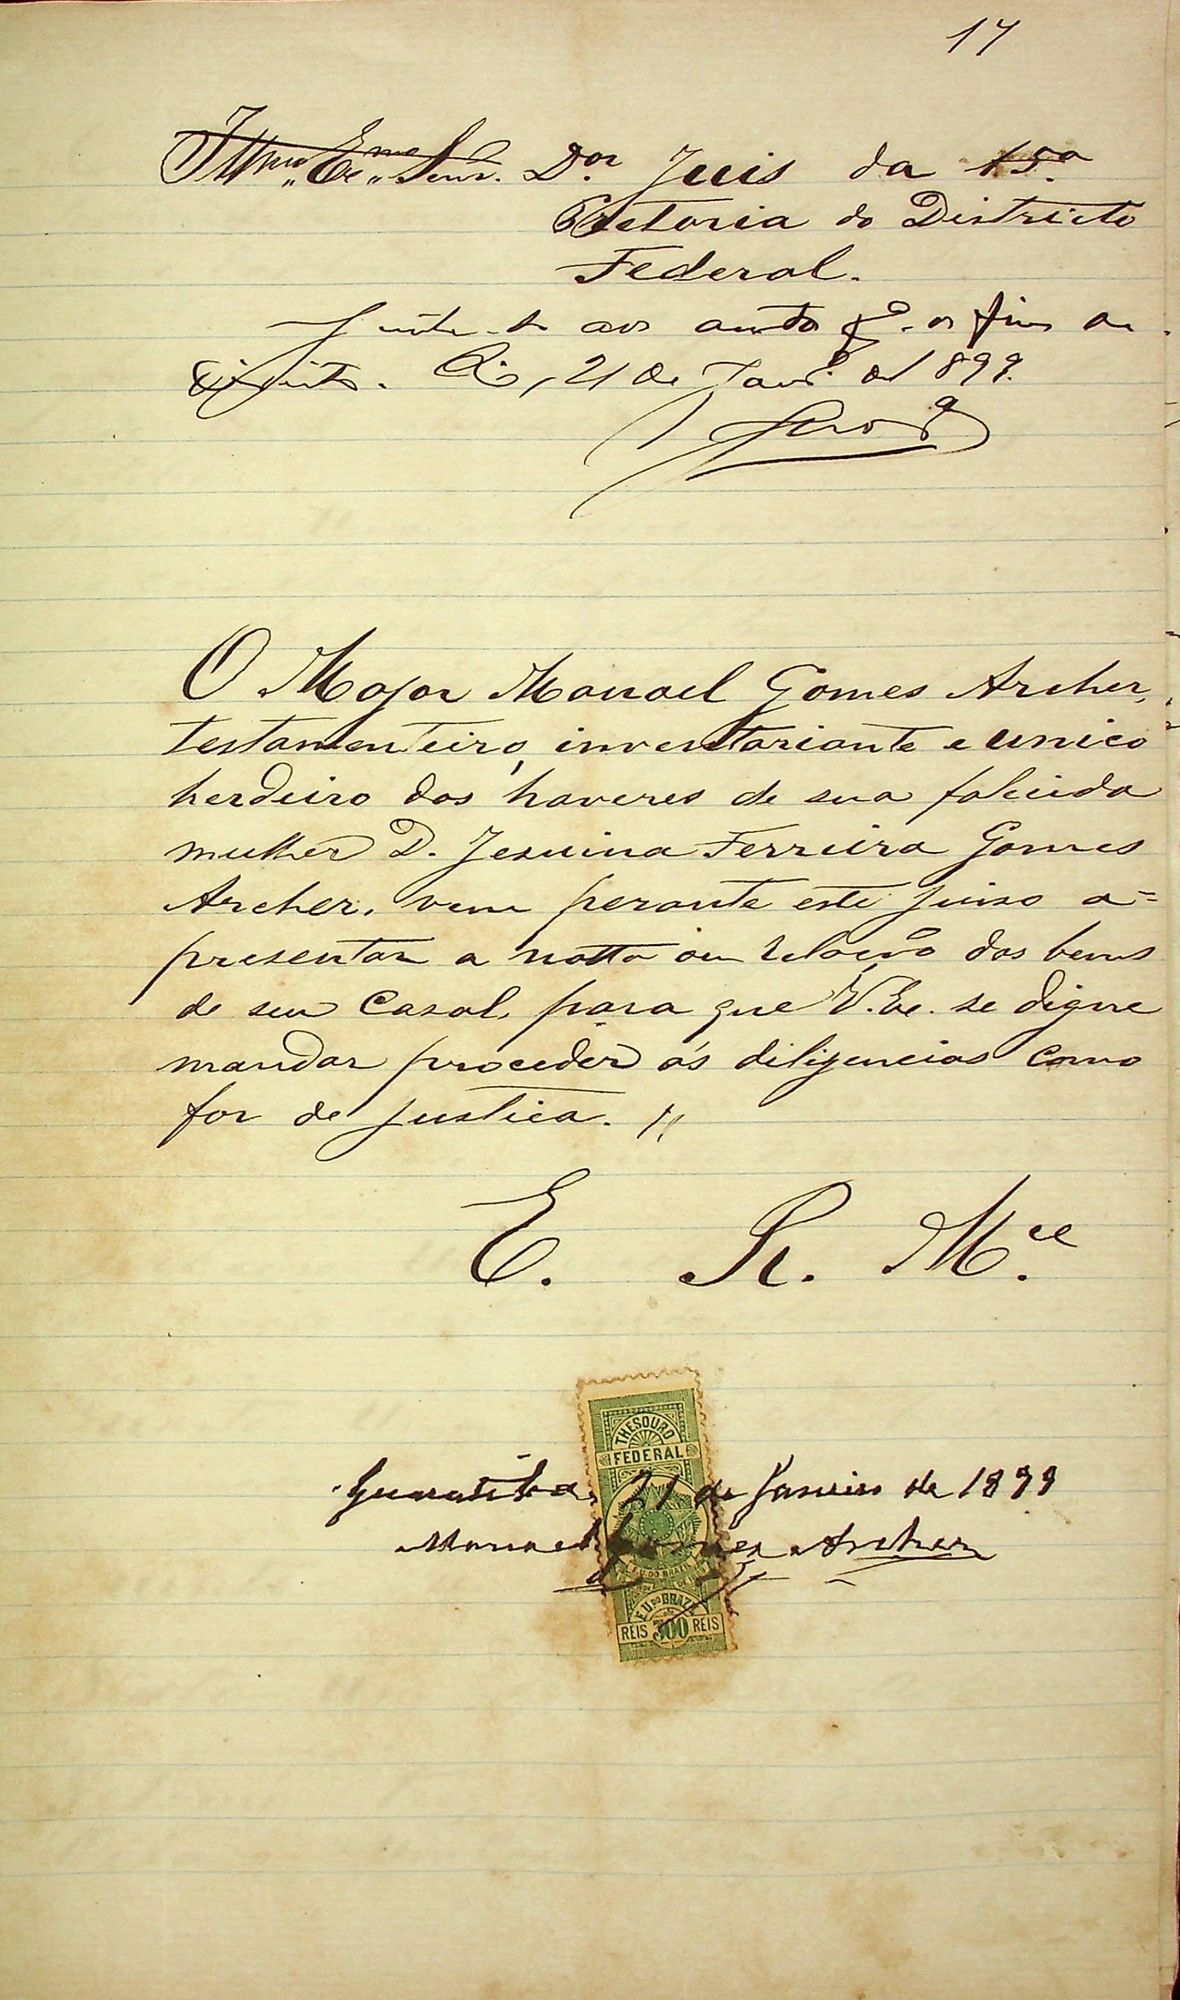 17
Illmo. Exmo. Senr. Dor. Juis da 15a
Pretoria do Districto
Federal.
Junte-se aos autos pa. os fins de
direito. Rio, 21 de Janro. de 1899.
O Major Manoel Gomes Archer,
testamenteiro, inventariante e unico
herdeiro dos haveres de sua falicida
mulher D. Jesuina Ferreira Gomes
Archer, vem perante este juiso a=
presentar a notta ou relação dos bens
de seu Casal, para que V. Ex. se digne
mandar proceder ás diligencias como
for de justiça.
E. R. Mce.
THESOURO
FEDERAL
Guaratiba, 21 de Janeiro de 1899
Manoel Gomes Archer
E.U. DO BRAZIL
E.U. DO BRAZIL
REIS 300 REIS